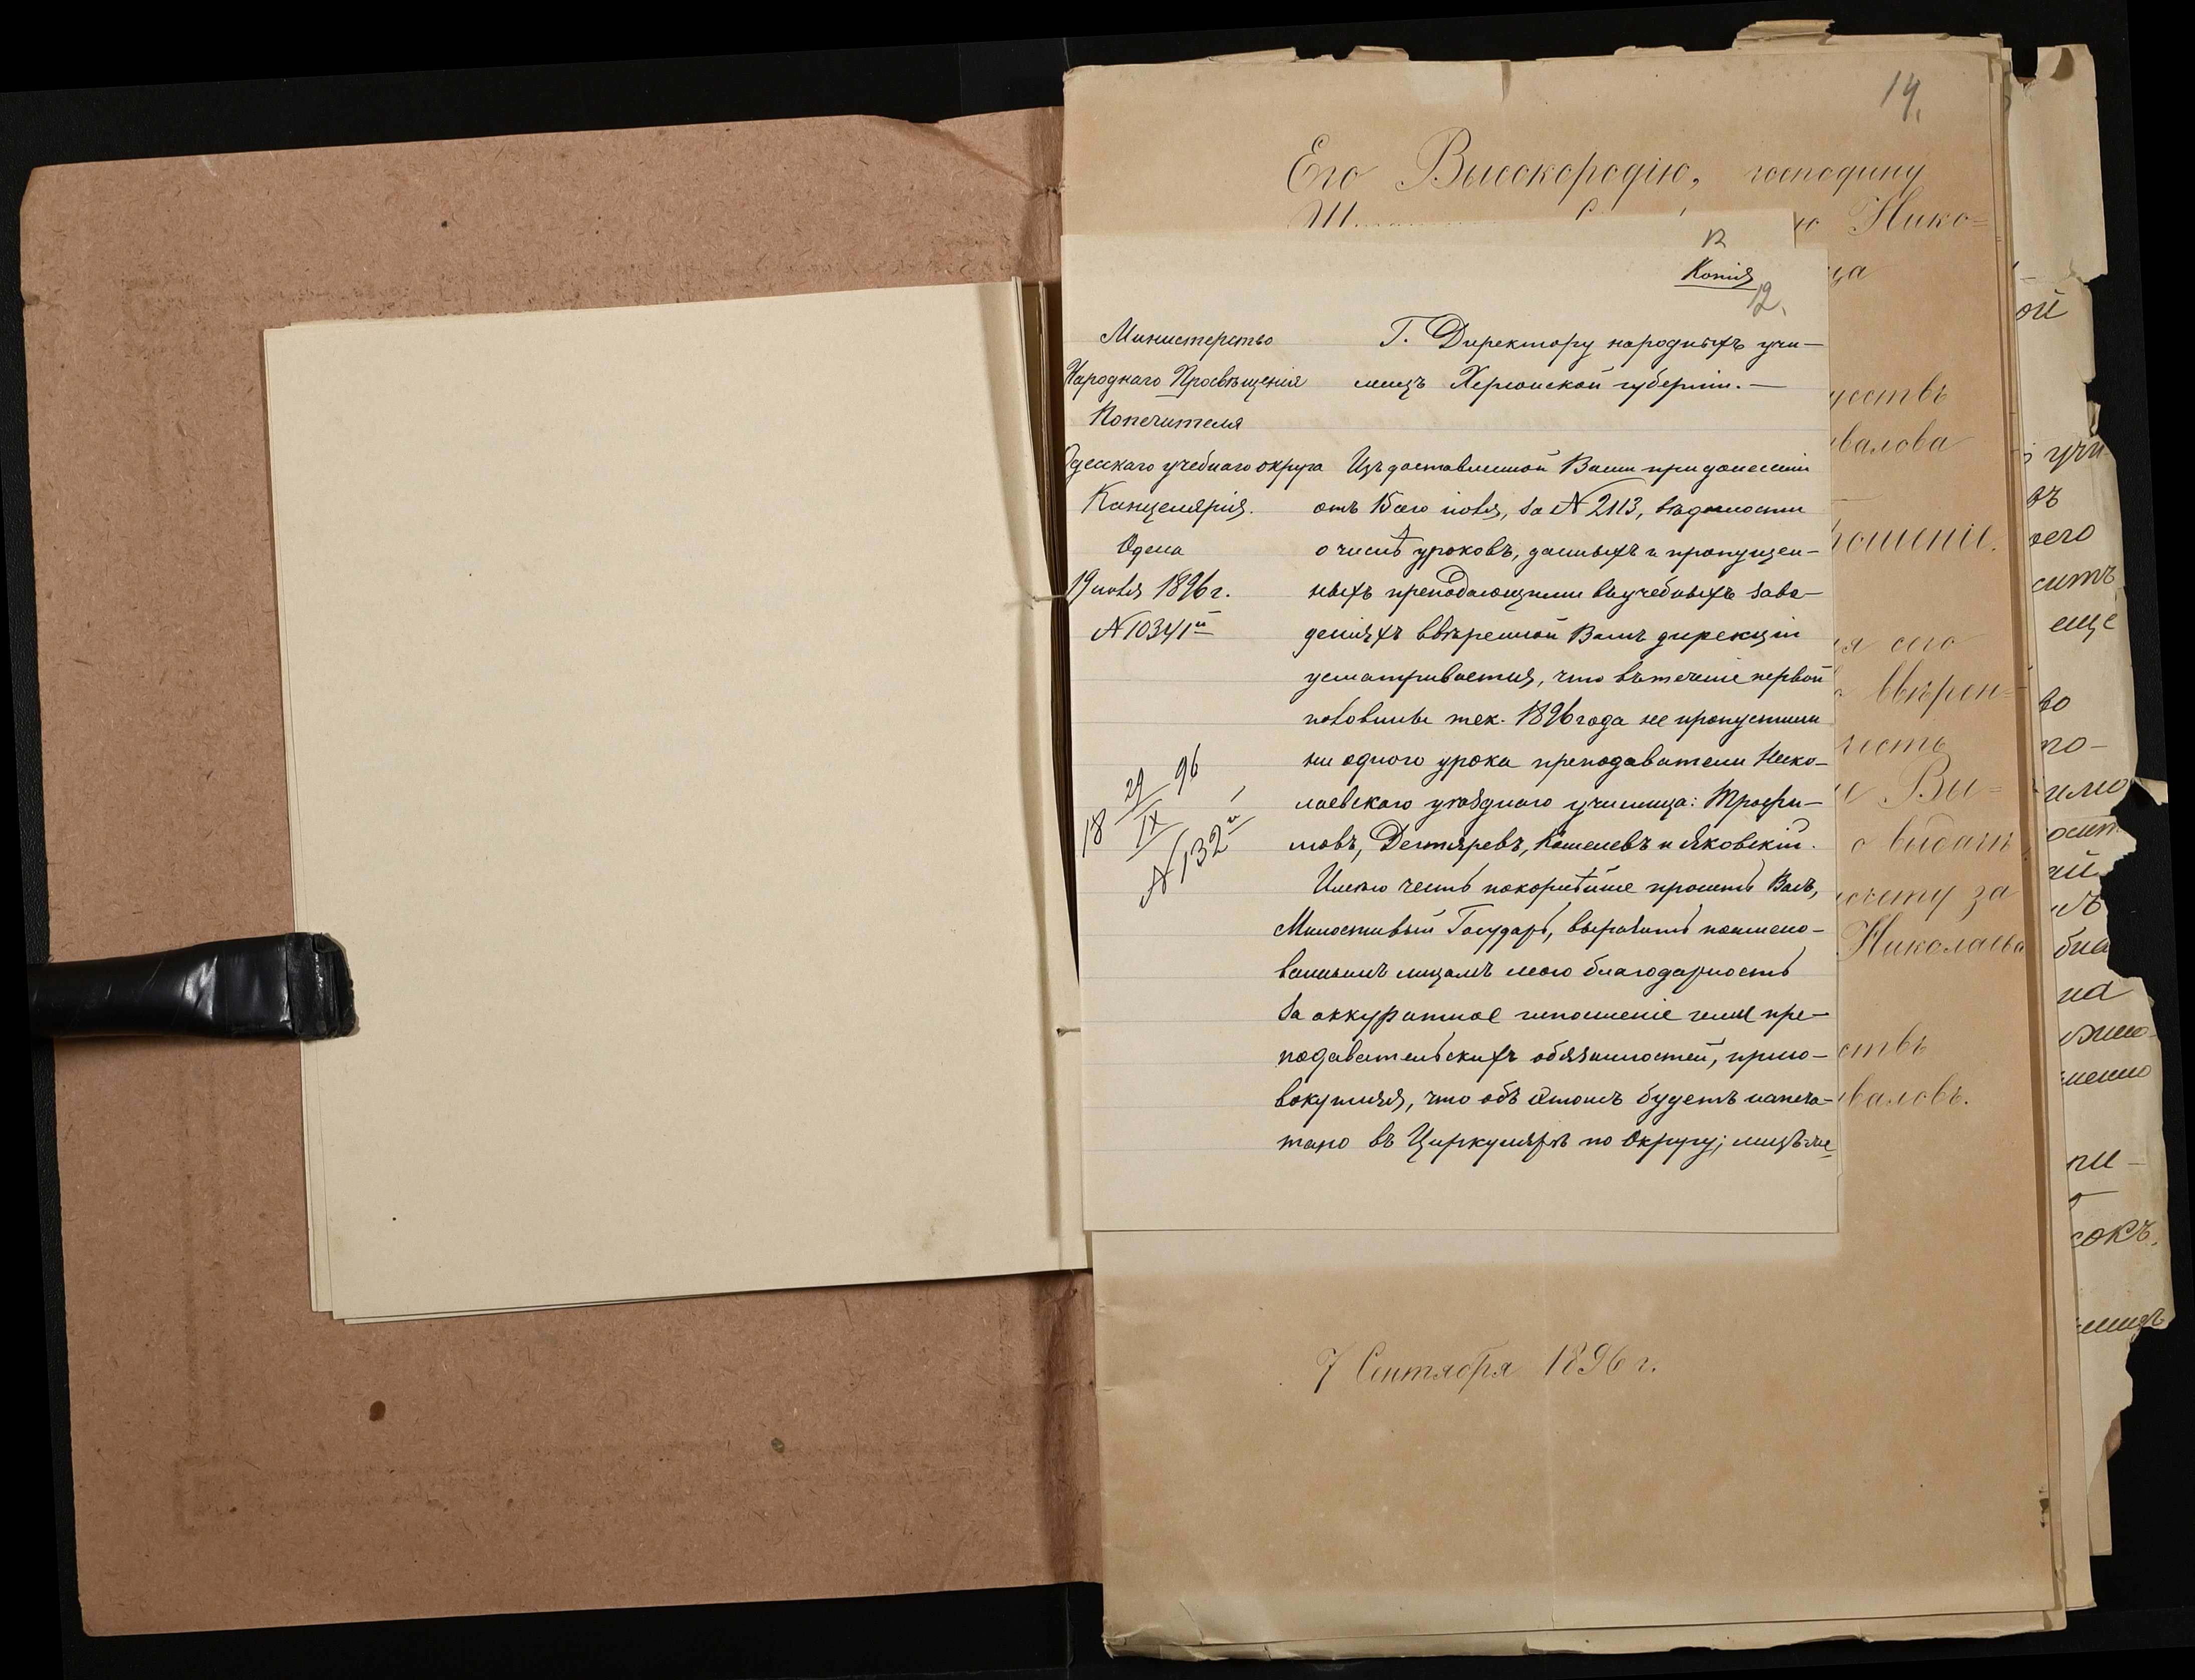 14.
Его Высокородію, господину
ю Нико=
ца
12
Копія
12.
Министерство
Народнаго Просвѣщенія
Попечителя
Одесскаго учебнаго округа
Канцелярія.
Одесса
19 іюля 1896 г.
№ 10341
Г. Директору народныхъ учи-
лищъ Херсонской губерніи. —
Изъ доставленной Вами при донесеніи
отъ 15 сего іюля, за № 2113, вѣдомости
о числѣ уроковъ, данныхъ и пропущен-
ныхъ преподающими въ учебныхъ заве-
деніяхъ ввѣренной Вамъ дирекціи
усматривается, что въ теченіе первой
половины тек. 1896 года не пропустили
ни одного урока преподаватели Нико-
лаевскаго уѣзднаго училища: Трофи-
мовъ, Дегтяревъ, Кошелевъ и Яковскій.
Имѣю честь покорнѣйше просить Васъ,
Милостивый Государь, выразить поимено-
ваннымъ лицамъ мою благодарность
за аккуратное исполненіе ими пре-
подавательскихъ обязанностей, присо-
вокупляя, что объ этомъ будетъ напеча-
тано въ Циркулярѣ по Округу; лицъ же
18 29/IX 96
№ 132
валова
ошеніе.
я сего
ввѣрен=
честь
Ви=
о выдачѣ
счету за
Николаева
валовъ.
7 Сентября 1896 г.
ой
учи
ъ
него
ситъ
еще
во
по-
ай
на
пи-
сокъ.